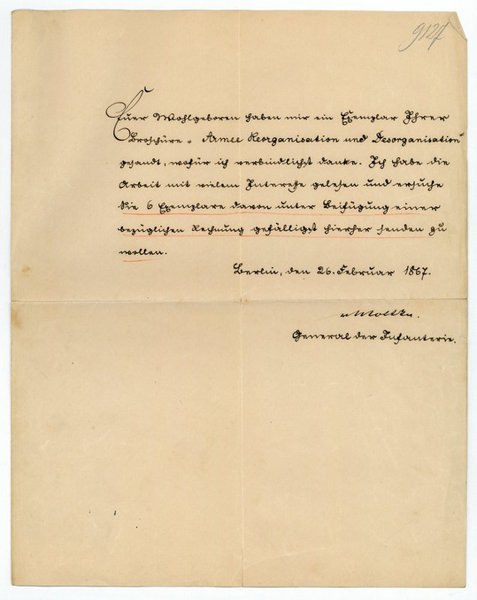 9127
Euer Wohlgeboren haben mir ein Exemplar Ihrer
Broschüre „Armee Reorganisation und Desorganisation“
gesandt, wofür ich verbindlichst danke. Ich habe die
Arbeit mit vielem Interesse gelesen und ersuche
Sie 6 Exemplare davon unter Beifügung einer
bezüglichen Rechnung gefälligst hierher senden zu
wollen.
Berlin, den 26. Februar 1867.
v Moltke.
General der Infanterie.